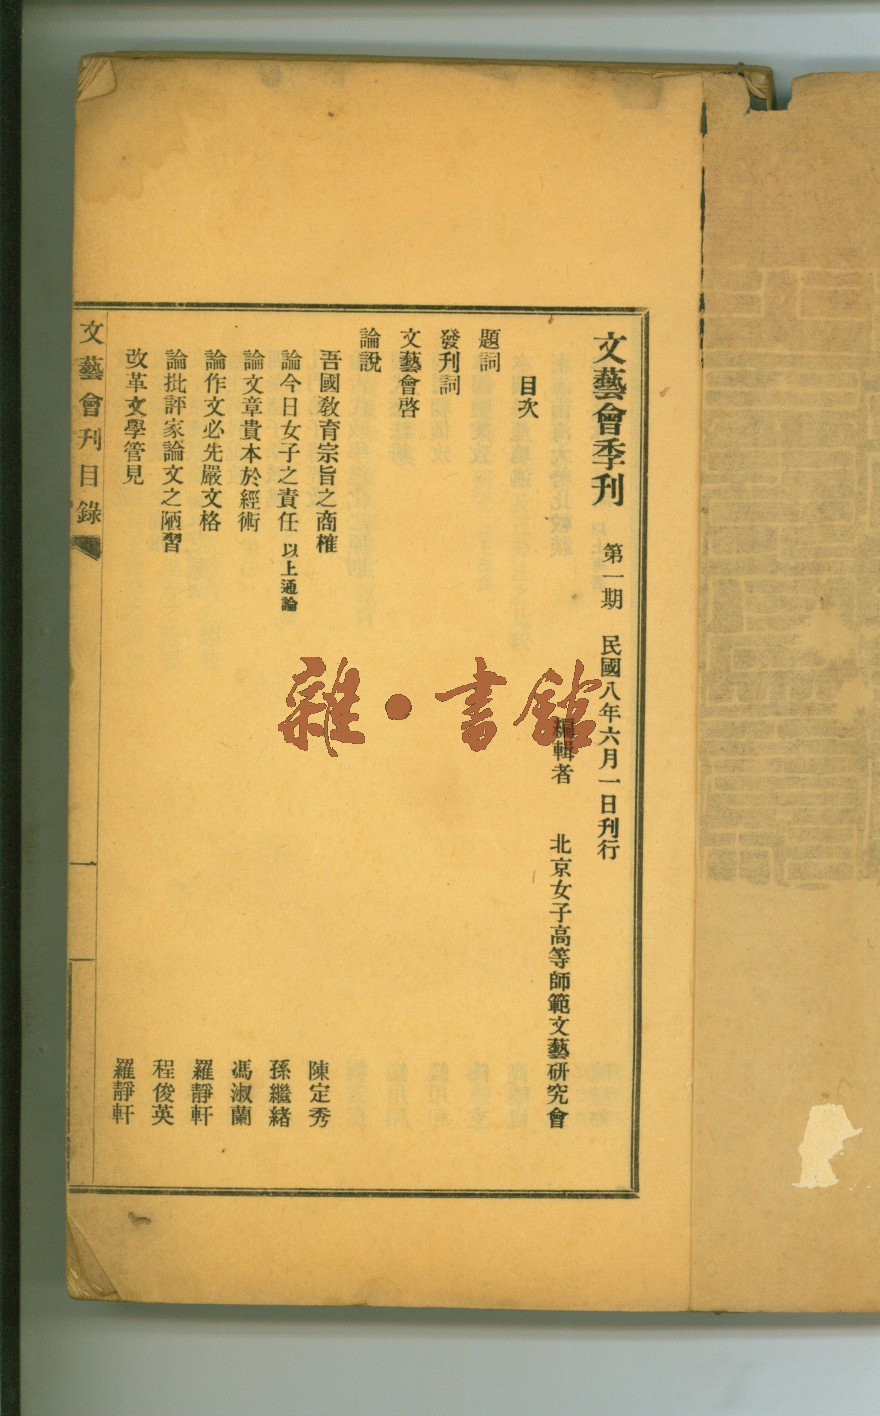 文藝會季刊 第一期 民國八年六月一日刊行
編輯者 北京女子高等師範文藝研究會
目次
題詞
發刊詞
文藝會啓
論說
吾國教育宗旨之商榷 陳定秀
論今日女子之責任 以上通論 孫繼緒
論文章貴本於經術 馮淑蘭
論作文必先嚴文格 羅靜軒
論批評家論文之陋習 程俊英
改革文學管見 羅靜軒
文藝會刊目錄
一
雜·書館